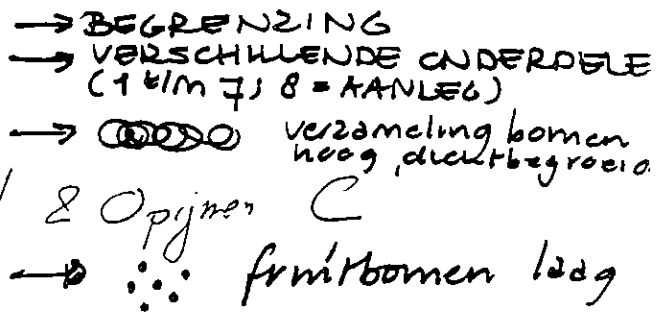 → BEGRENZING
→ VERSCHILLENDE ONDERDELE
(1 t/m 7; 8 = AANLEG)
→ verzameling bomen
hoog, dichtbegroeid
& Opijnen C
→ fruitbomen laag